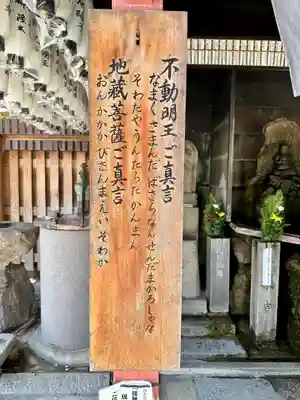 不動明王ご真言
なまくさまんだばさらなんせんだまかろしゃな
そわたやうんたらたかんまん
地蔵菩薩ご真言
おんかかかびさんまえいそわか